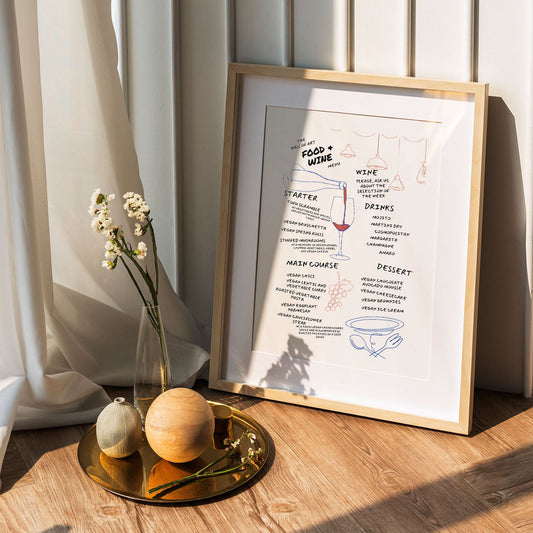 THE
WALL OF ART
FOOD +
WINE
MENU
STARTER
TOFU SCRAMBLE
VEGAN BRUSCHETTA
VEGAN SPRING ROLLS
STUFFED MUSHROOMS
MAIN COURSE
VEGAN CHILI
VEGAN LENTIL AND
VEGETABLE CURRY
ROASTED VEGETABLE
PASTA
VEGAN EGGPLANT
PARMESAN
VEGAN CAULIFLOWER
STEAK
WINE
PLEASE, ASK US
ABOUT THE
SELECTION OF
THE WEEK
DRINKS
MOJITO
MARTINI DRY
COSMOPOLITAN
MARGARITA
CHAMPAGNE
AMARO
DESSERT
VEGAN CHOCOLATE
AVOCADO MOUSSE
VEGAN CHEESECAKE
VEGAN BROWNIES
VEGAN ICE CREAM